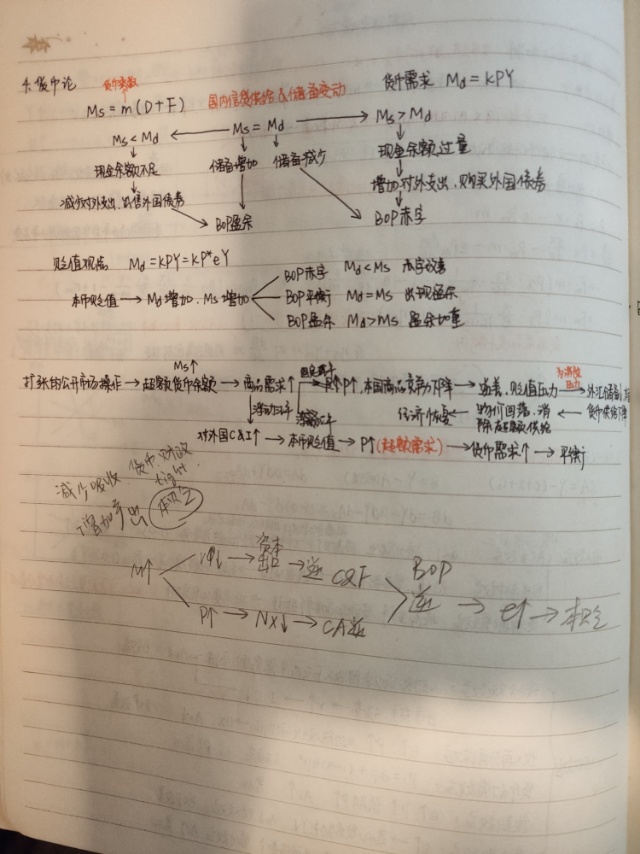 货币论 货币乘数 货币需求 Md = kPY
Ms = m(D+F) 国内信贷供给&储备变动
Ms < Md ← Ms = Md → Ms > Md
现金余额不足 储备增加 储备减少 现金余额过量
减少对外支出、出售外国债券 增加对外支出、购买外国债券
BOP盈余 BOP赤字
贬值观点 Md = kPY = kP*eY
BOP赤字 Md<Ms 赤字改善
本币贬值 → Md增加、Ms增加 BOP平衡 Md=Ms 出现盈余
BOP盈余 Md>Ms 盈余加重
Ms↑ 固定汇率
扩张的公开市场操作 → 超额货币余额 → 商品需求↑ → P↑, 本国商品竞争力下降 → 逆差、贬值压力 → 外汇储备↓
浮动汇率 经济恢复 ← 物价回落、消除超额供给 ← 货币供给下降
对外国C&I↑ → 本币贬值 → P↑(超额需求) → 货币需求↑ → 平衡
减少吸收 货币、财政
tight
增加产出 本贬
M↑ i↓ → 资本出口 → 逆 C&F BOP
逆 → e↑ → 本贬
P↑ → NX↓ → CA逆